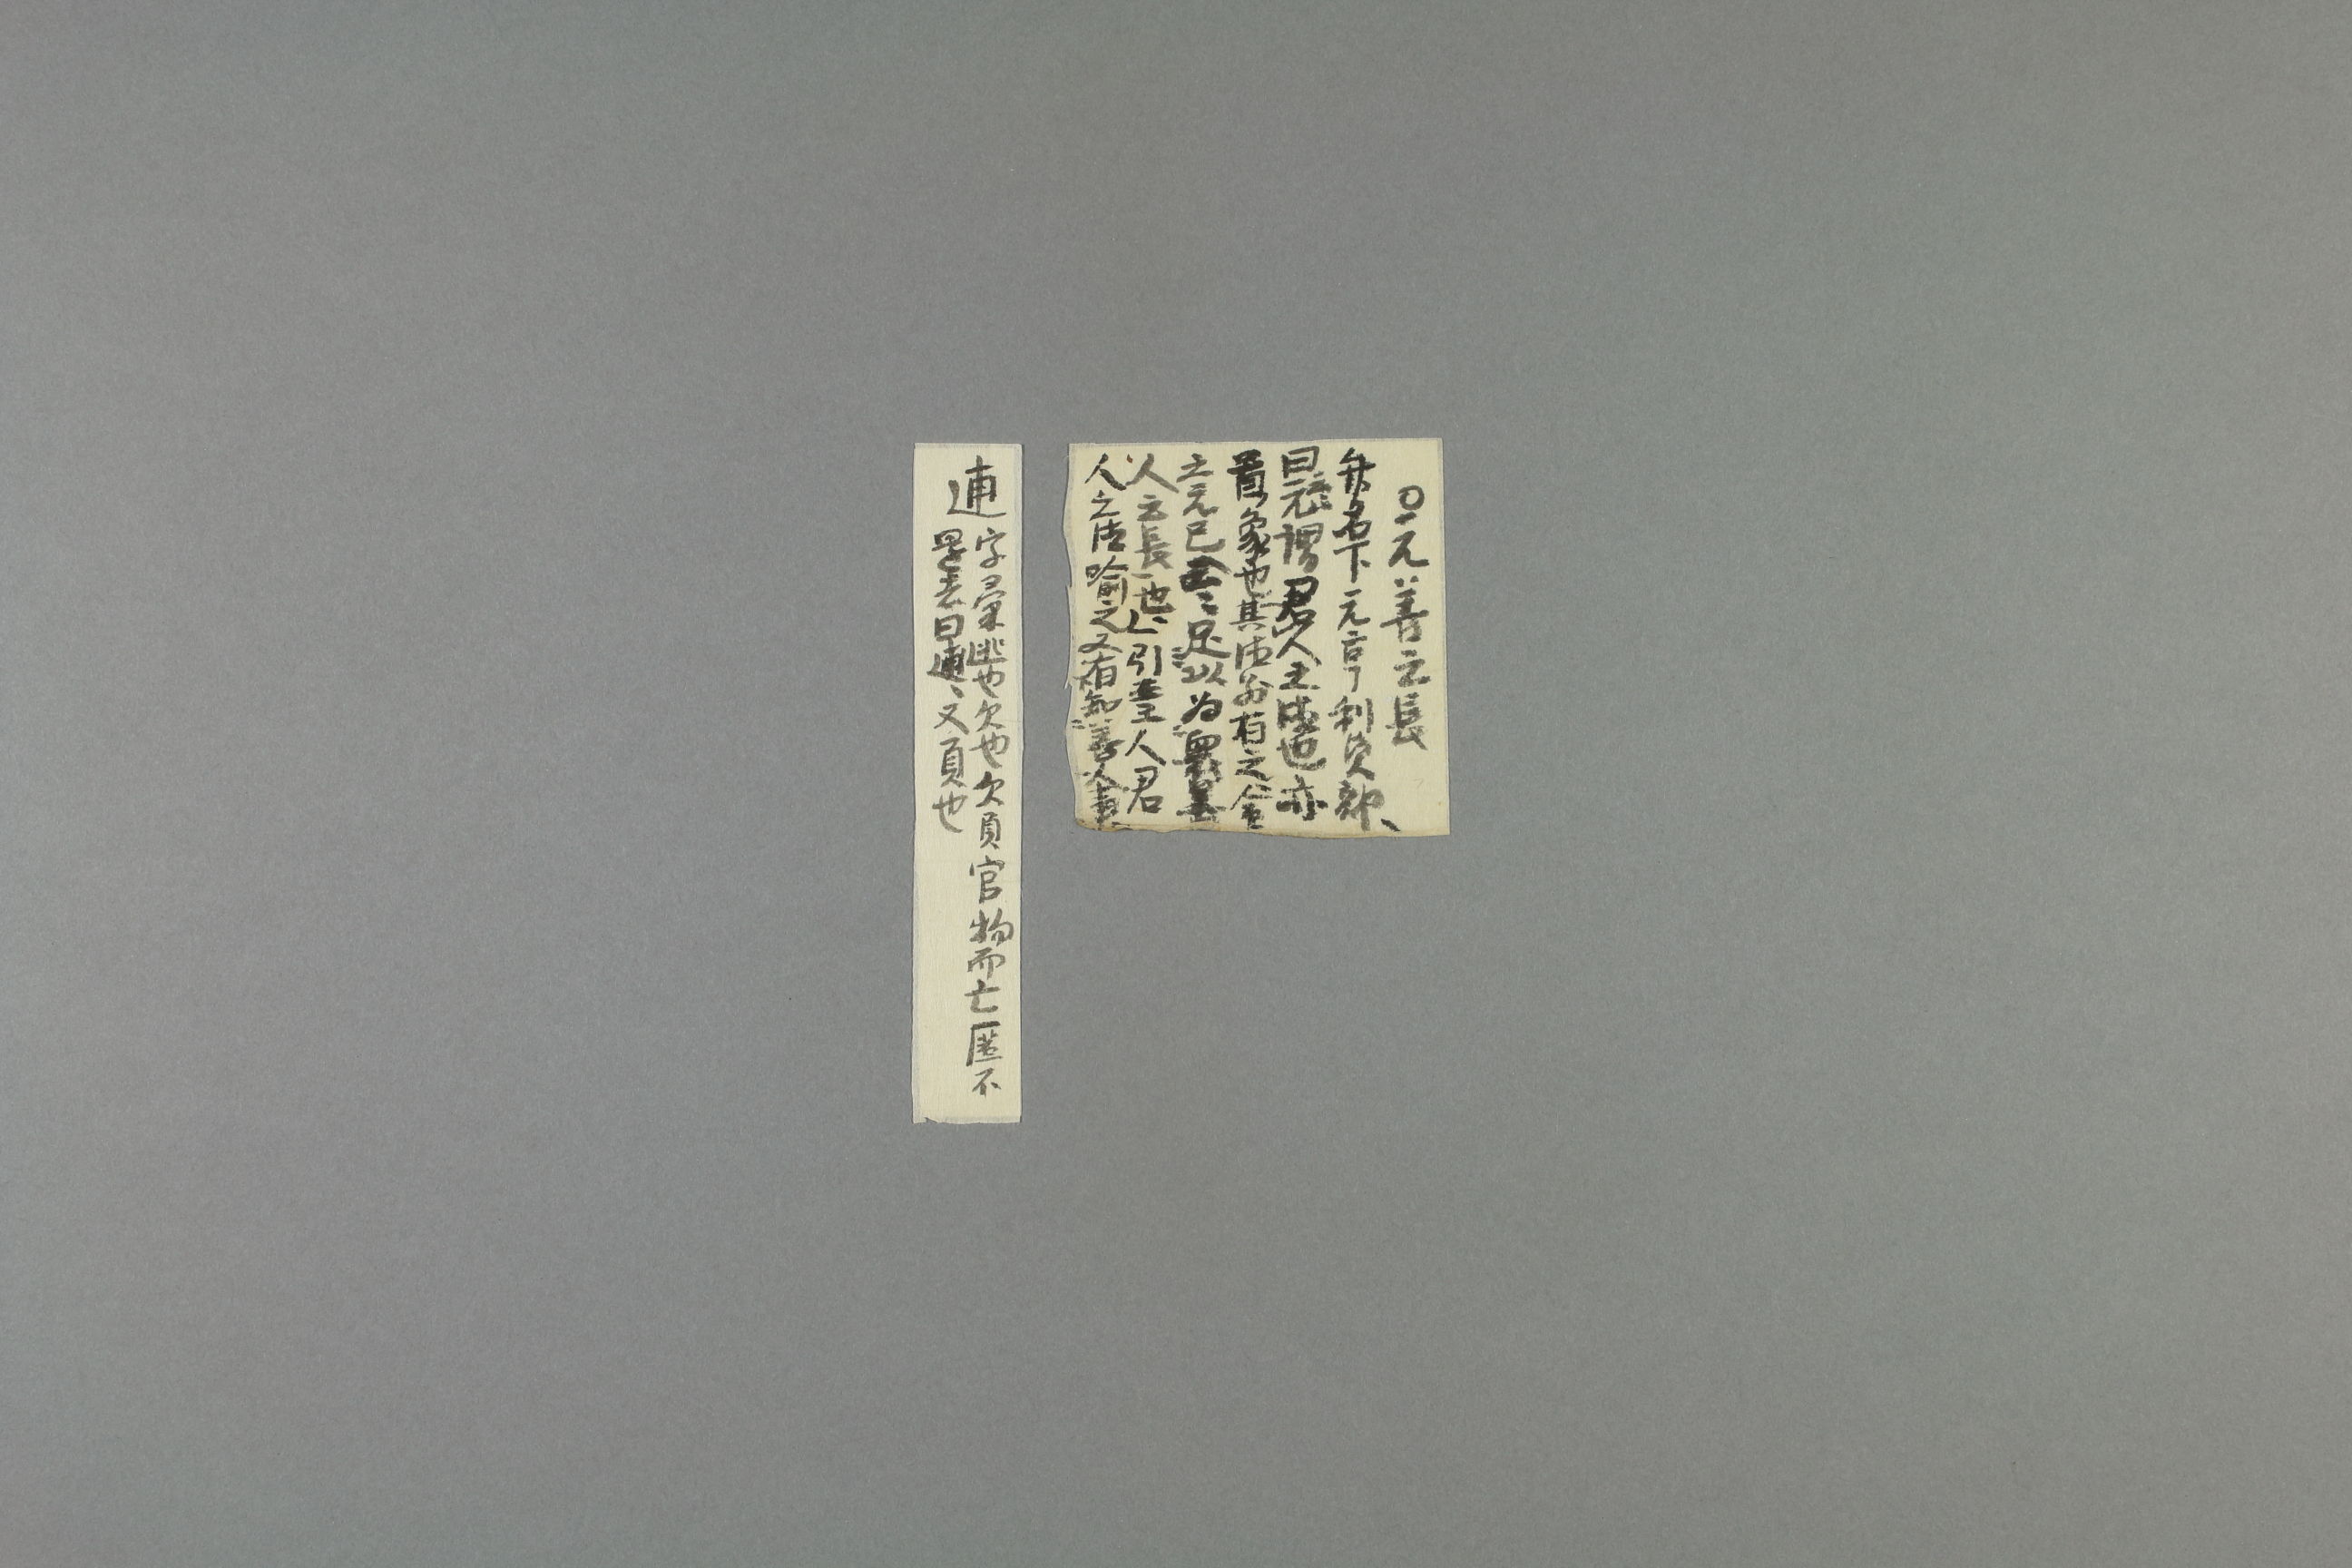 〇元善之長
弁名下元亨利貞部、
曰元謂君人之徳也亦
首象也其徳有之
之元已足以為衆善
人之長也引童人君
人之徳喩之又有知善人
逋
字彙逃也欠也欠負官物而亡匿不
還者曰逋、又負也